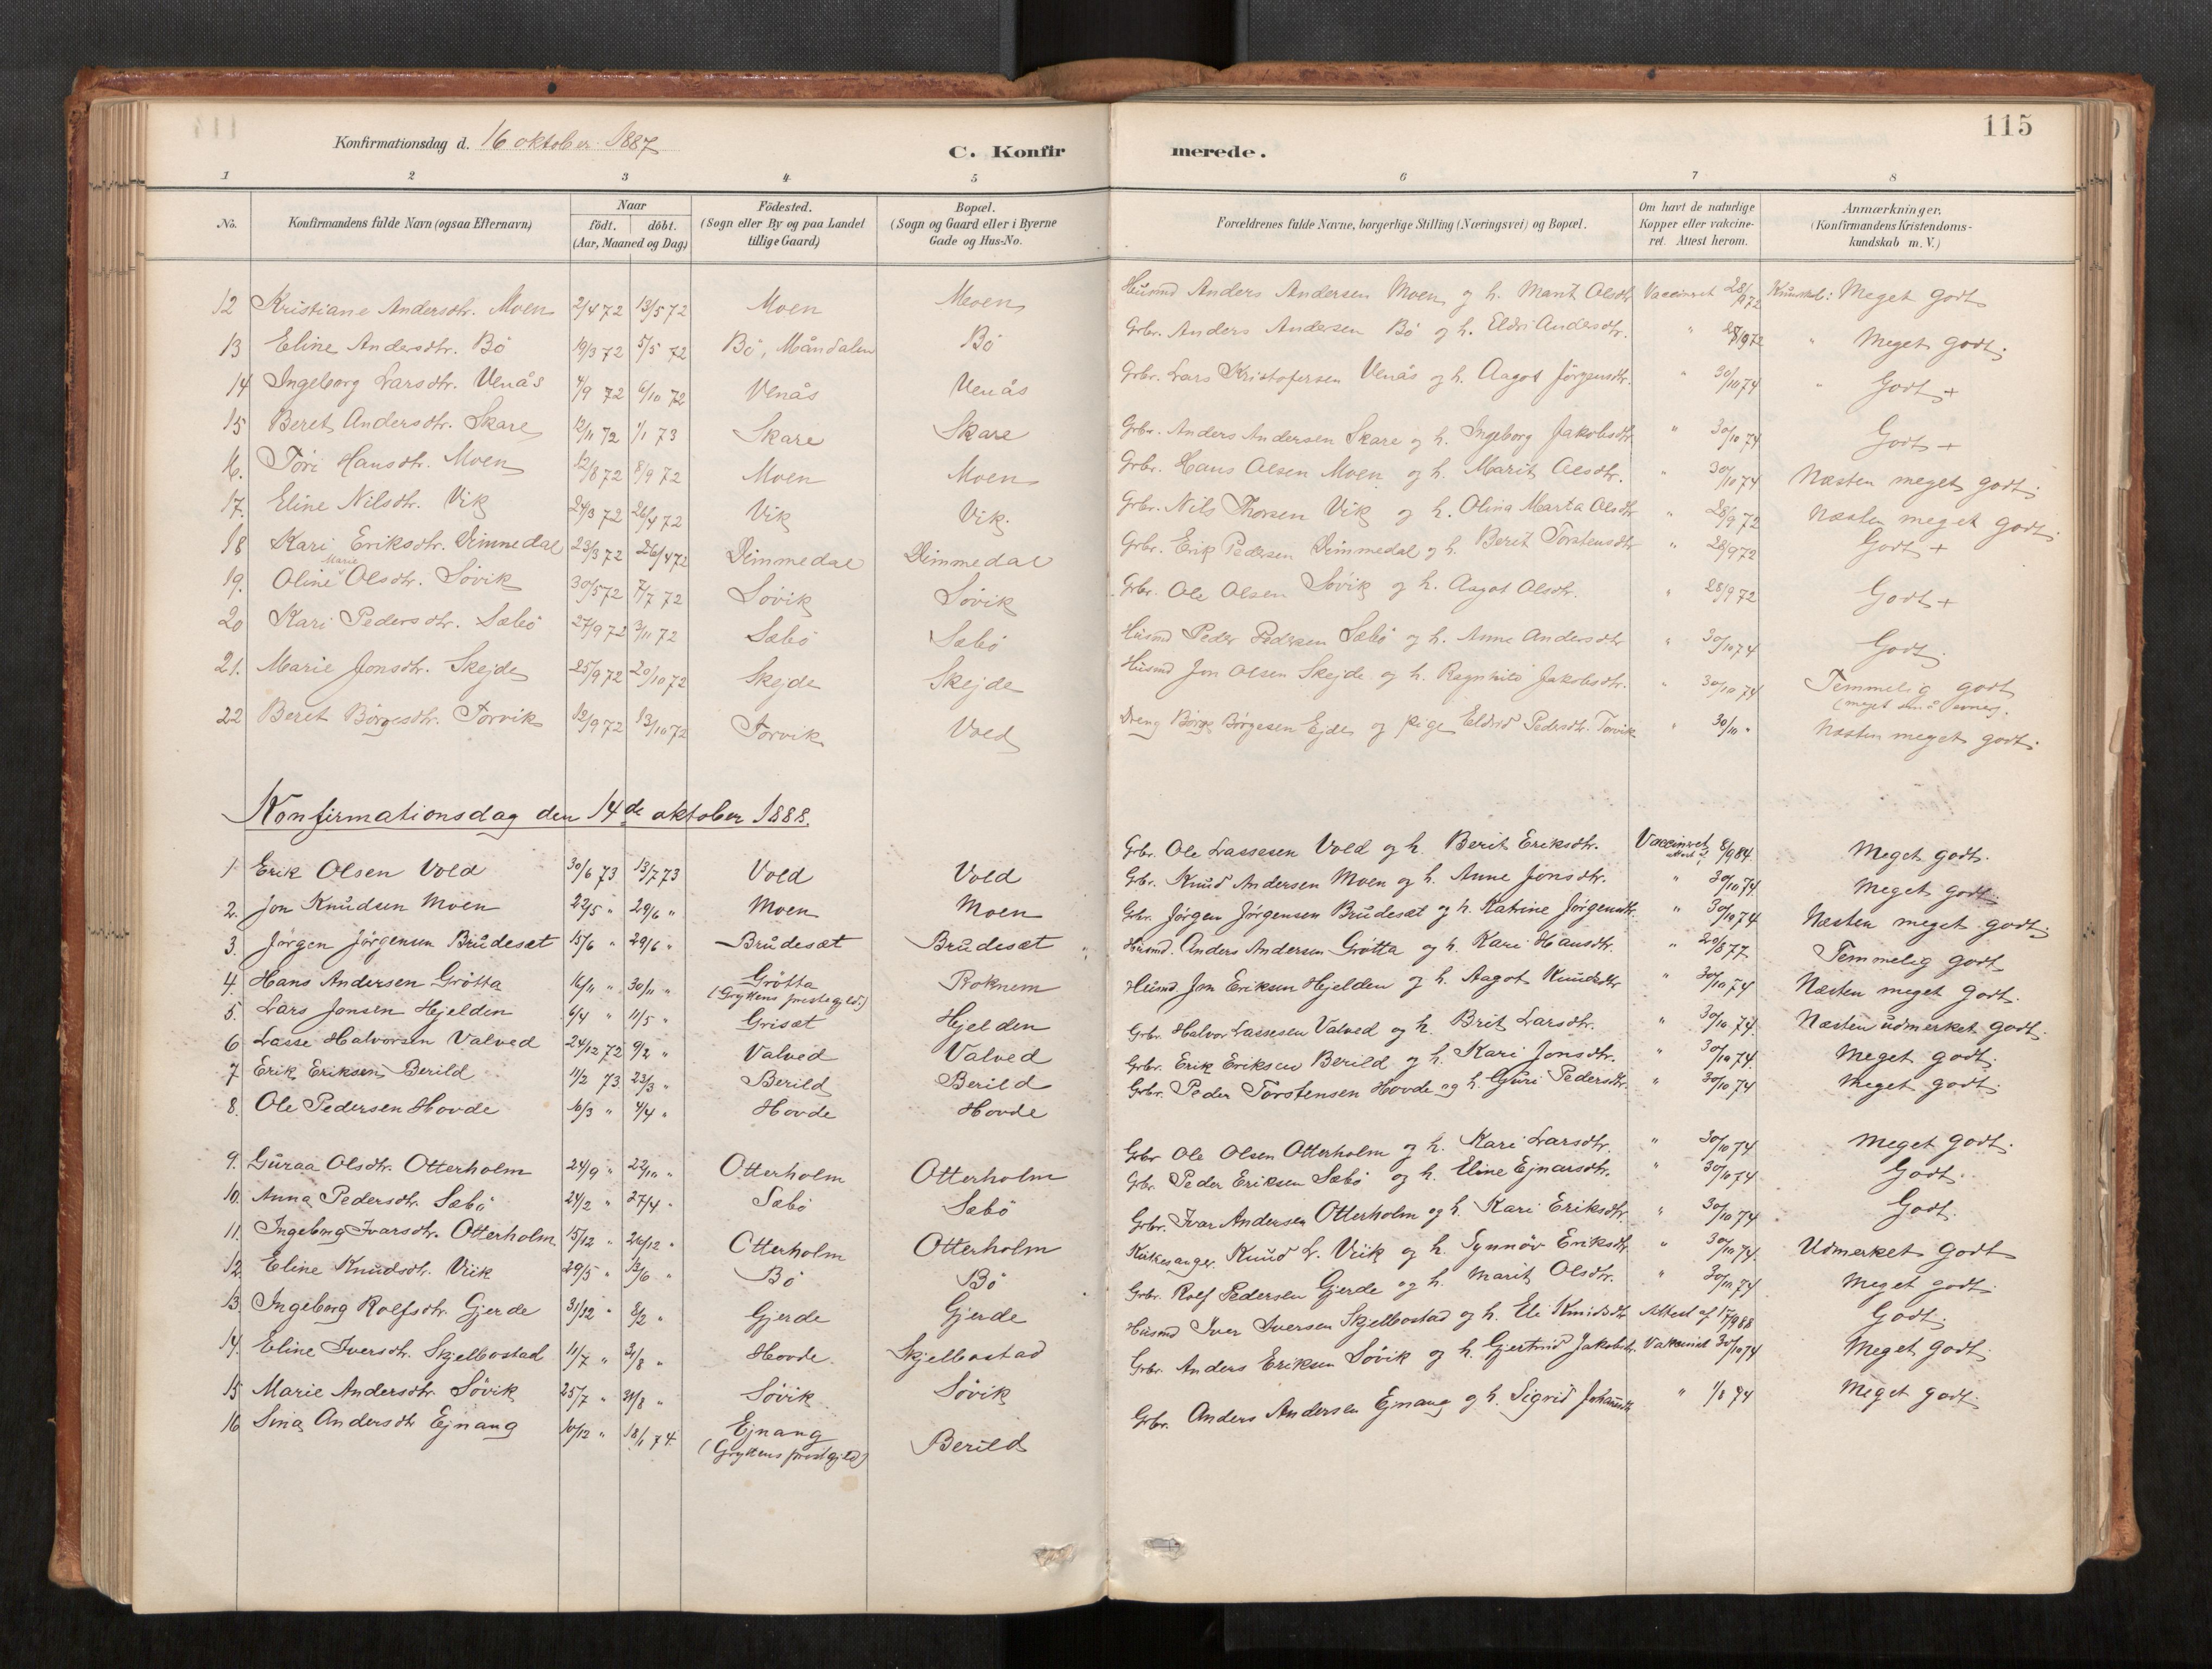 115
Konfirmationsdag d. 16 oktober 1887
C. Konfirmerede.
1 2 3 4 5 6 7 8
No. Konfirmandens fulde Navn (ogsaa Efternavn) Naar födt. döbt. (Aar, Maaned og Dag) Födested. (Sogn eller By og paa Landet tillige Gaard) Bopæl. (Sogn og Gaard eller i Byerne Gade og Hus-No. Forældrenes fulde Navne, borgerlige Stilling (Næringsvei) og Bopæl. Om havt de naturlige Kopper eller vakcineret. Attest herom. Anmærkninger. (Konfirmandens Kristendomskundskab m. V.)
12 Kristiane Andersdtr. Moen 2/4 72 13/5 72 Moen Moen Husmd Anders Andersen Moen og h. Marit Olsdtr Vaccineret 28/9 72 Kundsk: Meget godt
13 Eline Andersdtr. Bö 19/3 72 5/5 72 Bö, Måndalen Bö Grbr. Anders Andersen Bö og h. Eldri Andersdtr. " 28/9 72 " Meget godt.
14 Ingeborg Larsdtr. Venås 4/9 72 6/10 72 Venås Venås Grbr. Lars Kristofersen Venås og h. Aagot Jörgensdtr. " 30/10 74 " Godt +
15 Beret Andersdtr. Skare 12/11 72 1/1 73 Skare Skare Grbr. Anders Andersen Skare og h. Ingeborg Jakobsdtr. " 30/10 74 Godt +
16. Töri Hansdtr. Moen 12/8 72 8/9 72 Moen Moen Grbr. Hans Olsen Moen og h. Marit Olsdtr. " 30/10 74 Næsten meget godt.
17. Eline Nilsdtr. Vik 24/3 72 26/4 72 Vik Vik. Grbr. Nils Thorsen Vik og h. Olina Marta Olsdtr " 28/9 72 Næsten meget godt.
18 Kari Eriksdtr. Dimmedal 23/3 72 26/4 72 Dimmedal Dimmedal Grbr. Erik Pedersen Dimmedal og h. Berit Torstensdtr " 28/9 72 Godt +
19. Oline Marie Olsdtr. Sövik 30/5 72 7/7 72 Sövik Sövik Grbr. Ole Olsen Sövik og h. Aagot Olsdtr. " 28/9 72 Godt +
20 Kari Pedersdtr. Sæbö 27/9 72 3/11 72 Sæbö Sæbö Husmd Peder Pedersen Sæbö og h. Anne Andersdtr " 30/10 74 Godt.
21. Marie Jonsdtr. Skejde 25/9 72 20/10 72 Skejde Skejde Husmd Jon Olsen Skejde og h. Ragnhild Jakobsdtr. " 30/10 74 Temmelig godt (meget små evner).
22 Beret Börgesdtr. Torvik 12/9 72 13/10 72 Torvik Vold Dreng Börge Börgesen Ejde og pige Eldrid Pedersdtr. Torvik " 30/10 " Næsten meget godt.
Konfirmationsdag den 14de oktober 1888.
1 Erik Olsen Vold 30/6 73 13/7 73 Vold Vold Grbr. Ole Lassesen Vold og h. Berit Eriksdtr. Vaccineret attest 8/9 84. Meget godt.
2. Jon Knudsen Moen 22/5 " 29/6 " Moen Moen Grbr. Knud Andersen Moen og h. Anne Jonsdtr. " 30/10 74. Meget godt.
3. Jörgen Jörgensen Brudesæt 15/6 " 29/6 " Brudesæt Brudesæt Grbr. Jörgen Jörgensen Brudesæt og h. Katrine Jörgensdtr. " 30/10 74 Næsten meget godt.
4. Hans Andersen Grötta 16/11 " 30/11 " Grötta (Gryttens prestegjeld.) Roknem Husmd. Anders Andersen Grötta og h. Kari Hansdtr. " 20/8 77 Temmelig godt
5. Lars Jonsen Hjelden 6/4 " 11/5 " Grisæt Hjelden Husmd. Jon Eriksen Hjelden og h. Aagot Knudsdtr " 30/10 74 Næsten meget godt.
6 Lasse Halvorsen Valved 24/12 72 9/2 " Valved Valved Grbr. Halvor Lassesen Valved og h. Brit Larsdtr. " 30/10 74. Næsten udmerket godt.
7 Erik Eriksen Berild 11/2 73 23/3 " Berild Berild Grbr. Erik Eriksen Berild og h. Kari Jonsdtr. " 30/10 74. Meget godt.
8. Ole Pedersen Hovde 16/3 " 4/4 " Hovde Hovde Grbr. Peder Torstensen Hovde og h. Guri Pedersdtr. " 30/10 74 Meget godt.
9. Guraa Olsdtr. Otterholm 24/9 " 22/10 " Otterholm Otterholm Grbr Ole Olsen Otterholm og h. Kari Larsdtr. " 30/10 74 Meget godt.
10. Anna Pedersdtr. Sæbö 24/2 " 27/4 " Sæbö Sæbö Grbr. Peder Eriksen Sæbö og h. Eline Ejnarsdtr. " 30/10 74 Godt.
11. Ingeborg Ivarsdtr. Otterholm. 15/12 " 26/12 " Otterholm Otterholm Grbr. Ivar Andersen Otterholm og h. Kari Eriksdtr. " 30/10 74 Godt.
12. Eline Knudsdtr. Viik 29/5 " 13/6 " Bö Bö Kirkesanger. Knud L. Viik og h. Synnöv Eriksdtr " 30/10 74. Udmerket godt
13. Ingeborg Rolfsdtr. Gjerde 31/12 " 8/2 " Gjerde Gjerde Grbr. Rolf Pedersen Gjerde og h. Marit Olsdtr. " 30/10 74 Meget godt.
14. Eline Iversdtr. Skjelbostad 11/7 " 31/8 " Hovde. Skjelbostad Husmd Iver Iversen Skjelbostad og h. Eli Knudsdtr Attest af 17/9 88 Godt.
15 Marie Andersdtr. Sövik 25/7 " 31/8 " Sövik Sövik Grbr. Anders Eriksen Sövik og h. Gjertrud Jakobsdtr. Vakcineret 30/10 74 Meget godt.
16 Sina Andersdtr Ejnang 10/12 " 18/1 74. Ejnang (Gryttens prestgjeld) Berild Grbr. Anders Andersen Ejnang og h. Sigrid Johansdtr " 1/8 74 Meget godt.